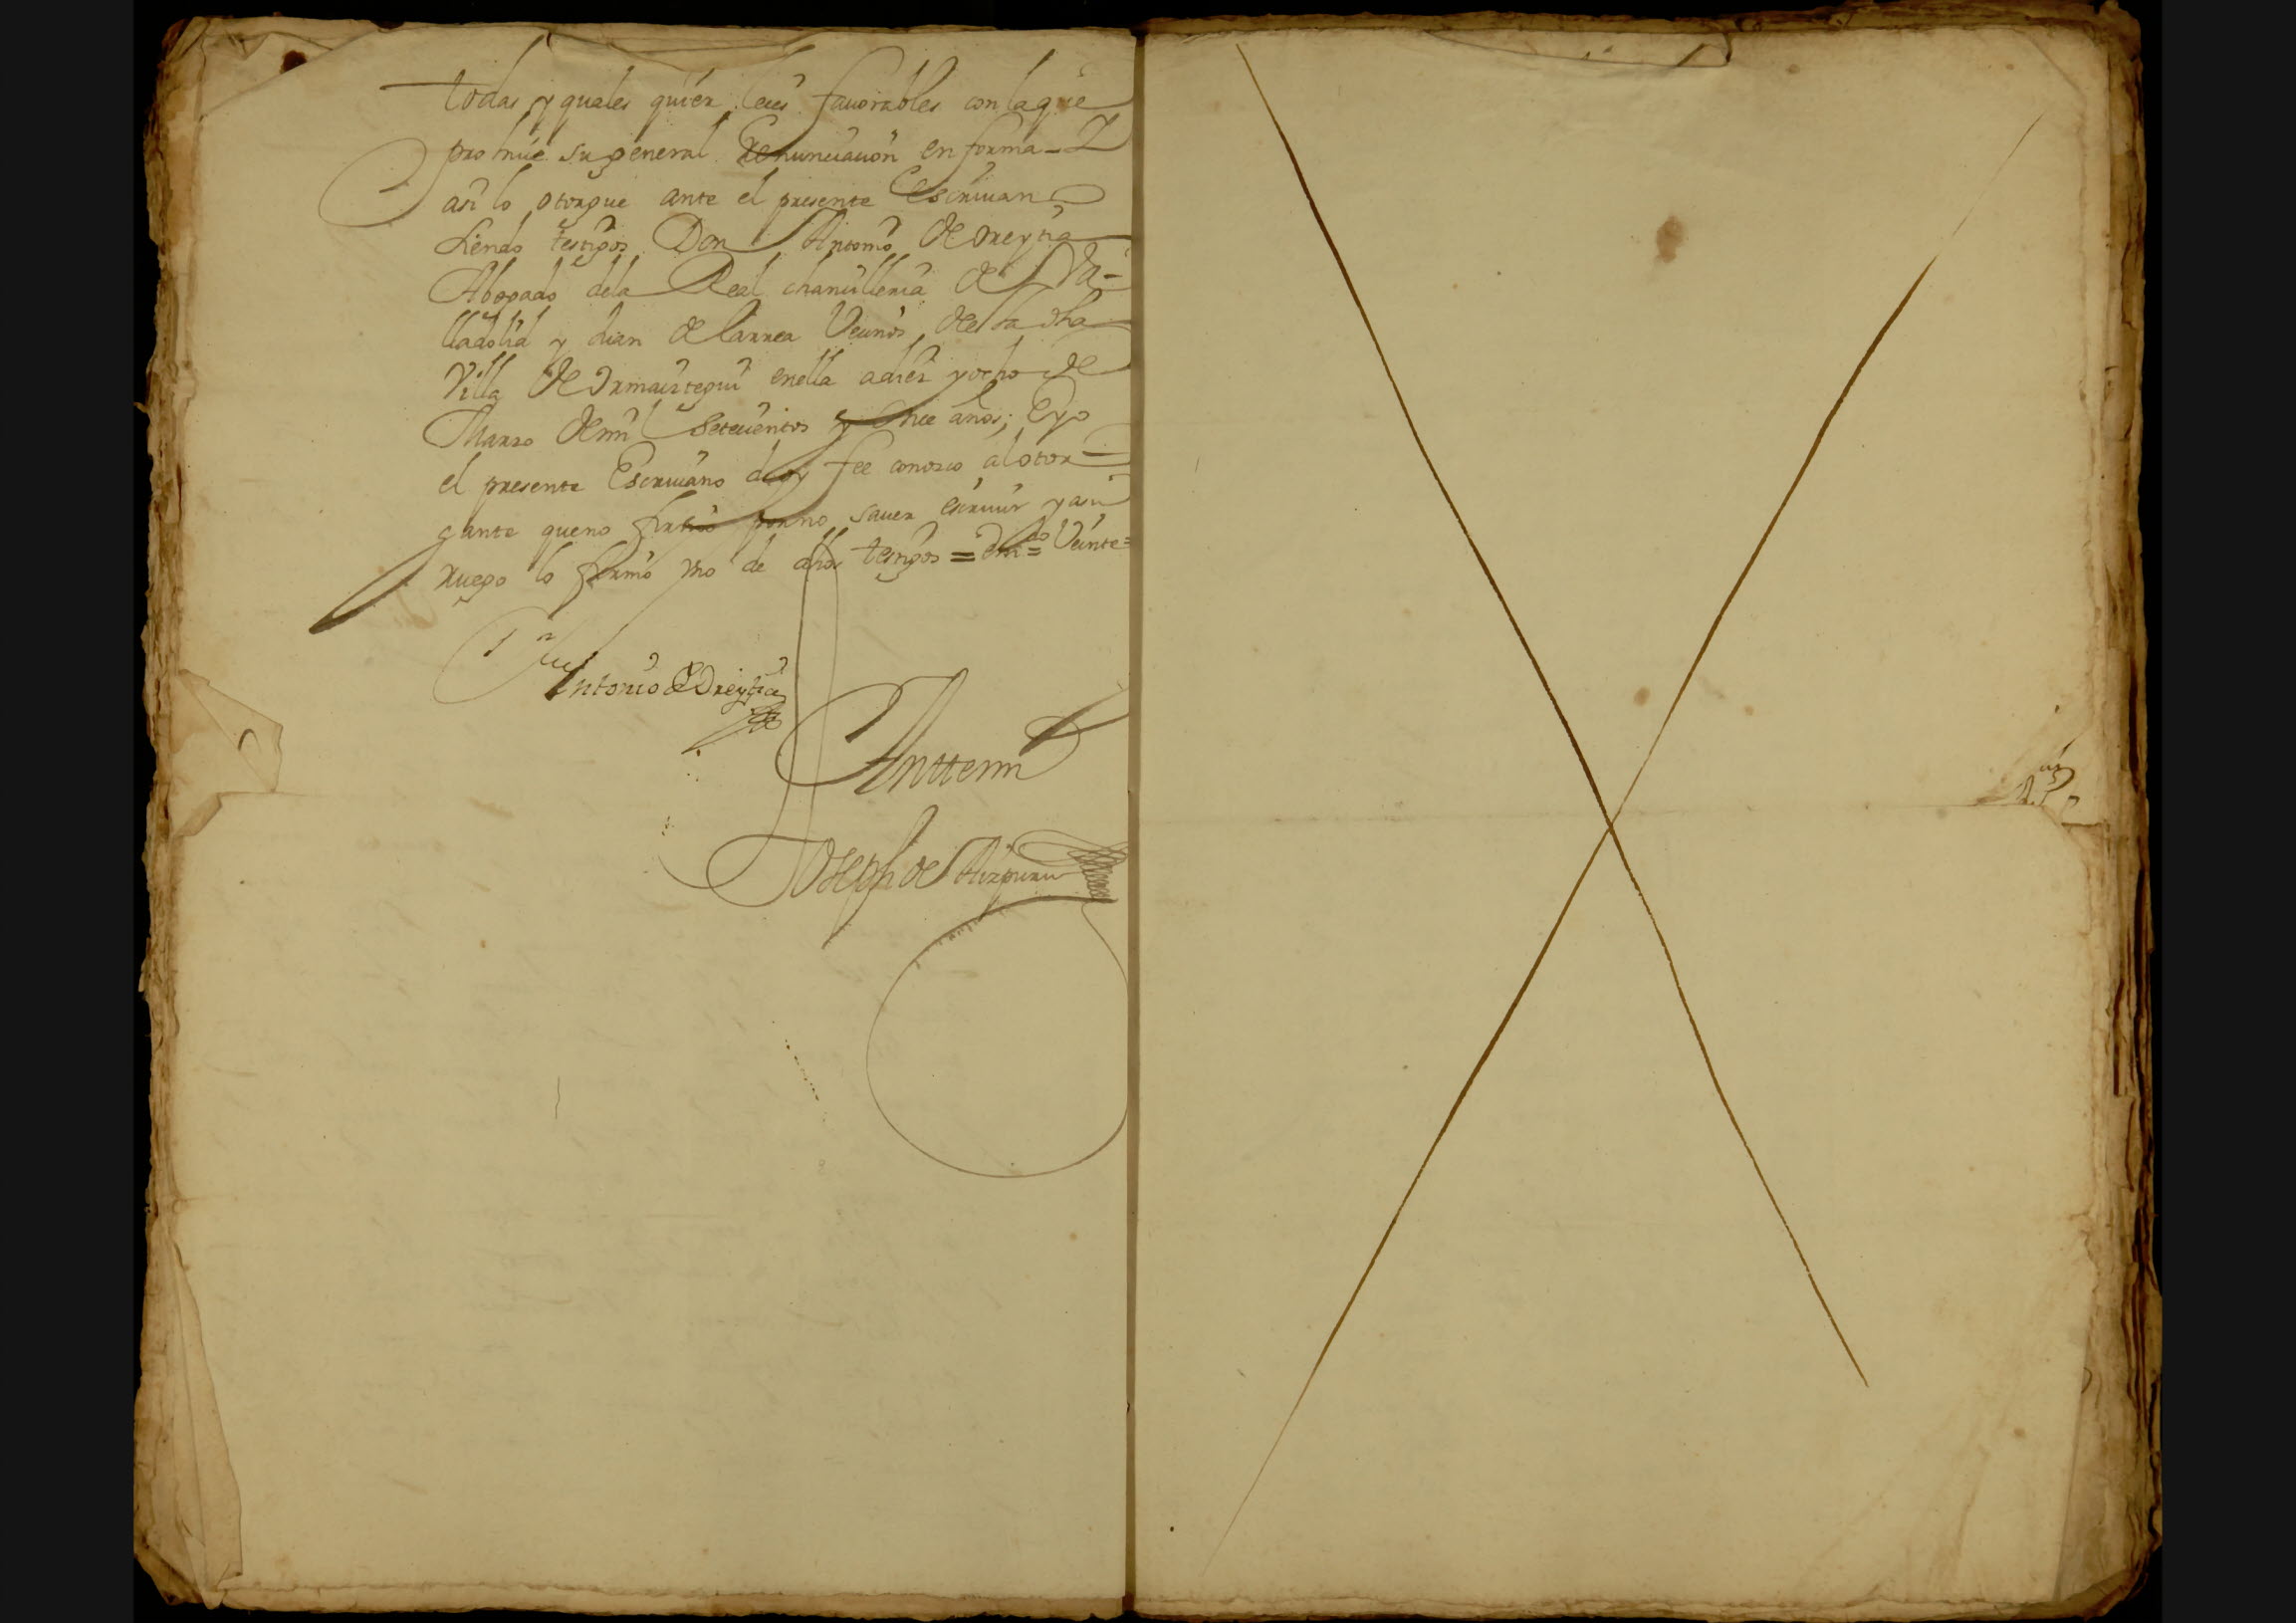 todas y quales quier leies favorables con la que
prohiue su general Renunciacion en forma - Y
asi lo otorgue ante el presente Escriuano
siendo testigos Don Antonio de Oreytia
Abogado dela Real chancilleria de Va-
lladolid y Juan de Larrea Vecinos desta dha
Villa de Ormaiztegui enella adiez yocho de
Marzo de mil Setecientos y Once años; Eyo
el presente Escriuano doy fee conozco alotor-
gante queno firmo porno saver escriuir yasu
ruego lo firmo vno de dhos testigos = Em.do = Veinte =
Antonio de Oreytia
Anttemi
Joseph de Aizpuru